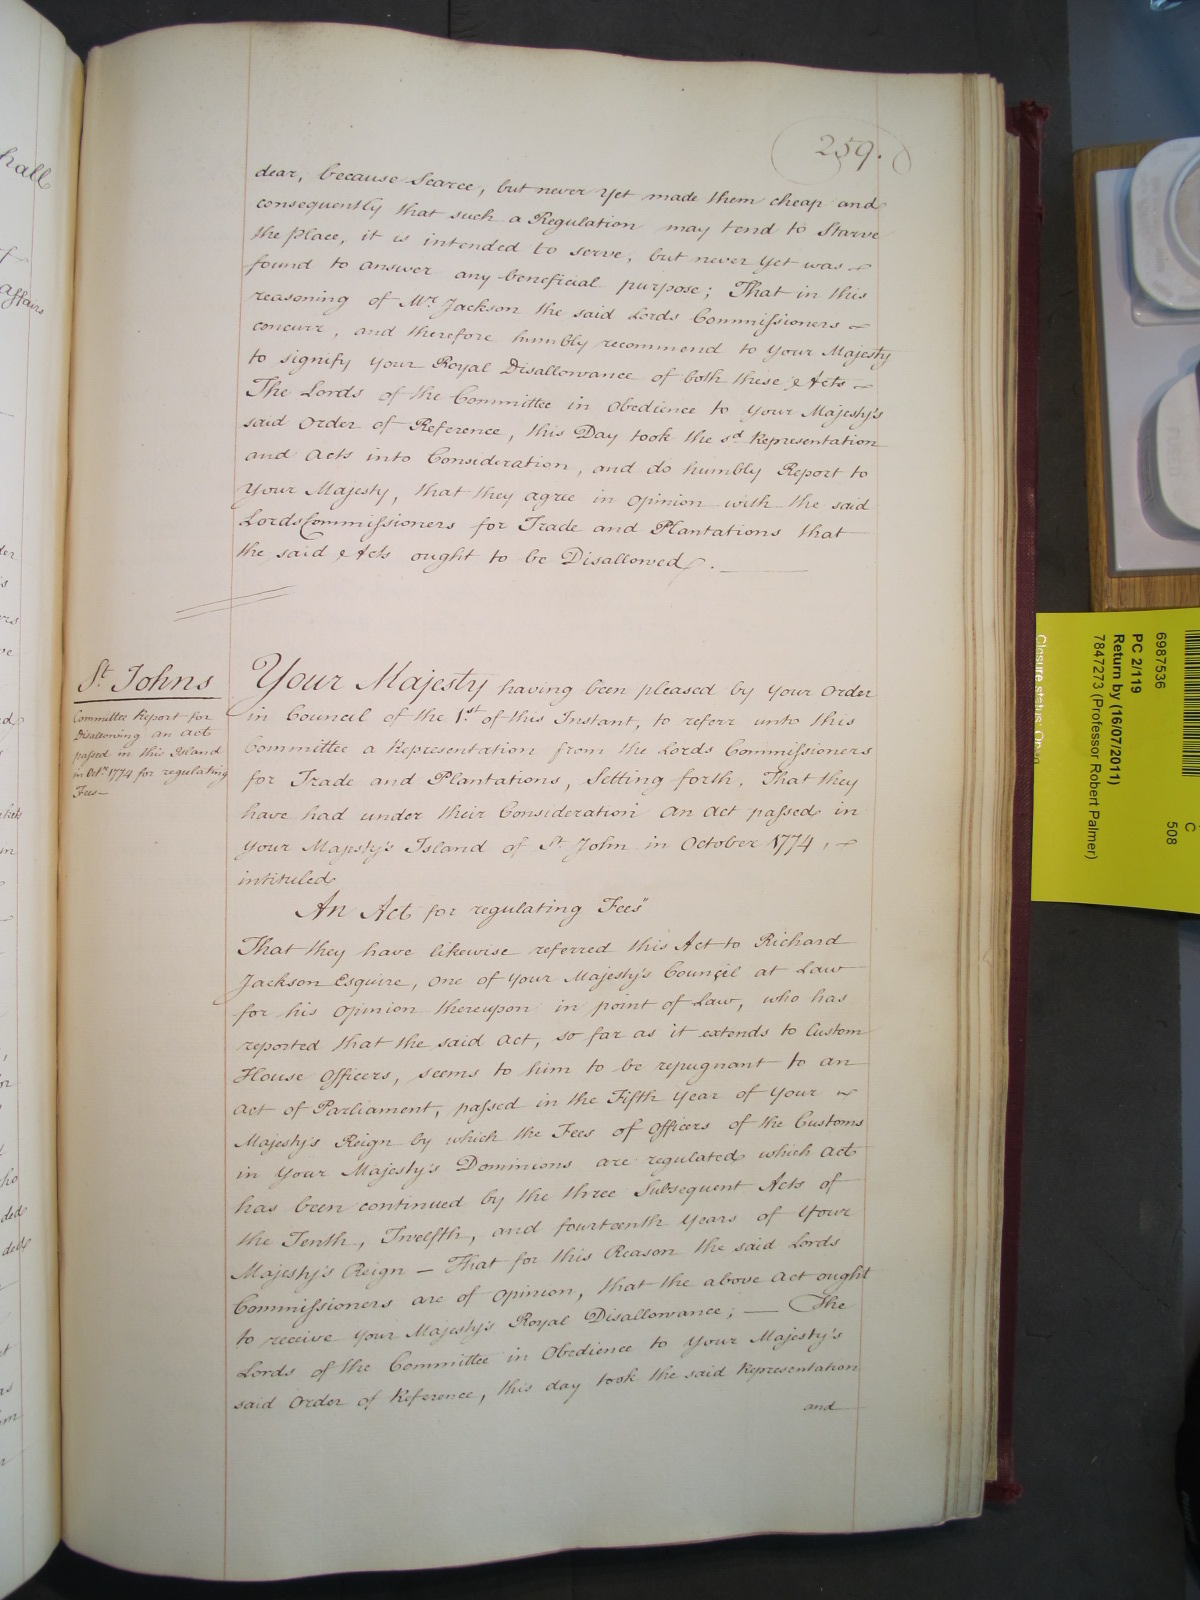 259.
dear, because Scarce, but never Yet made them cheap and
consequently that such a Regulation may tend to Starve
the Place, it is intended to serve, but never Yet was
found to answer any beneficial purpose; That in this
reasoning of Mr. Jackson the said Lords Commissioners
concurr, and therefore humbly recommend to Your Majesty
to signify Your Royal Disallowance of both these Acts
The Lords of the Committee in Obedience to Your Majesty's
said Order of Reference, this Day took the sd. Representation
and Acts into Consideration, and do humbly Report to
Your Majesty, that they agree in Opinion with the said
Lords Commissioners for Trade and Plantations that
the said Acts ought to be Disallowed.
St. Johns
Committee Report for
Disallowing an Act
passed in this Island
in Octr. 1774 for regulating
Fees
Your Majesty having been pleased by Your Order
in Council of the 1st. of this Instant, to referr unto this
Committee a Representation from the Lords Commissioners
for Trade and Plantations, Setting forth. That they
have had under their Consideration an Act passed in
Your Majesty's Island of St. John in October 1774,
intituled
An Act for regulating Fees"
That they have likewise referred this Act to Richard
Jackson Esquire, One of Your Majesty's Council at Law
for his Opinion thereupon in point of Law, who has
reported that the said Act, so far as it extends to Custom
House Officers, seems to him to be repugnant to an
Act of Parliament, passed in the Fifth Year of Your
Majesty's Reign by which the Fees of Officers of the Customs
in Your Majesty's Dominions are regulated which Act
has been continued by the three Subsequent Acts of
the Tenth, Twelfth, and fourteenth Years of Your
Majesty's Reign — That for this Reason the said Lords
Commissioners are of Opinion, that the above Act ought
to receive Your Majesty's Royal Disallowance; — The
Lords of the Committee in Obedience to Your Majesty's
said Order of Reference, this day took the said Representation
and
6987536
PC 2/119
Return by (16/07/2011)
7847273 (Professor Robert Palmer)
Closure status: Open
C
508
hall
affairs